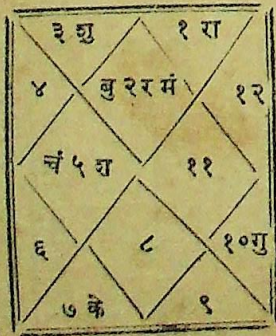 ३ शु १ रा
४ बु २ र मं १२
चं ५ श ११
६ ८ १० गु
७ के ९